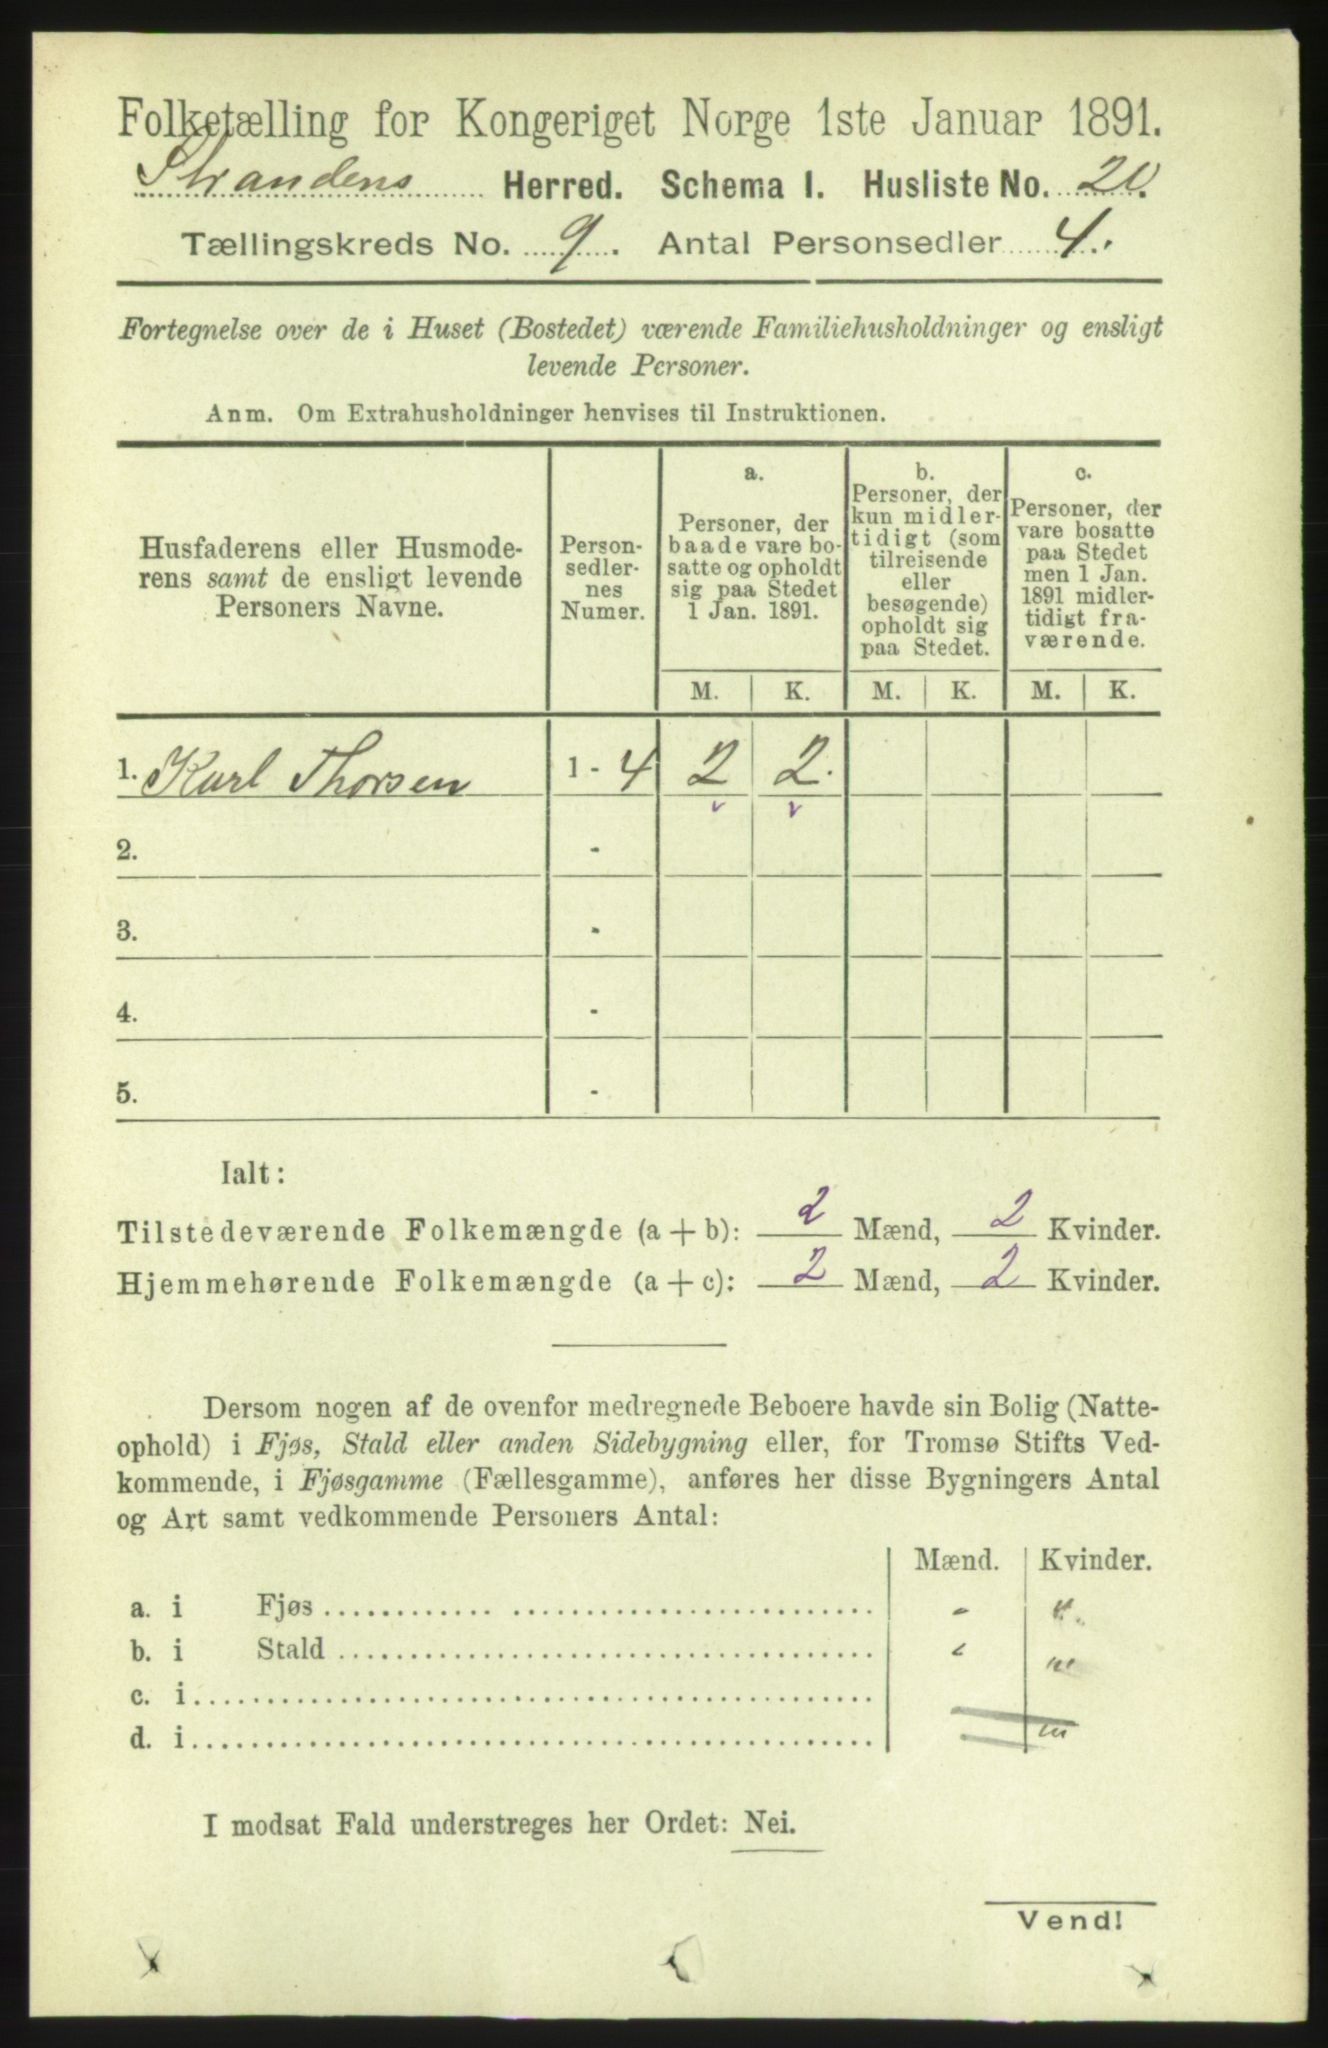 Folketælling for Kongeriget Norge 1ste Januar 1891.
Strandens Herred. Schema I. Husliste No. 20.
Tællingskreds No. 9. Antal Personsedler 4.
Fortegnelse over de i Huset (Bostedet) værende Familiehusholdninger og ensligt
levende Personer.
Anm. Om Extrahusholdninger henvises til Instruktionen.
Husfaderens eller Husmode-
rens samt de ensligt levende
Personers Navne.
Person-
sedler-
nes
Numer.
a.
Personer, der
baade vare bo-
satte og opholdt
sig paa Stedet
1 Jan. 1891.
b.
Personer, der
kun midler-
tidigt (som
tilreisende
eller
besøgende)
opholdt sig
paa Stedet.
c.
Personer, der
vare bosatte
paa Stedet
men 1 Jan.
1891 midler-
tidigt fra-
værende.
M. K. M. K. M. K.
1. Karl Thorsen 1 - 4 2 2.
2. -
3. -
4. -
5. -
Ialt:
Tilstedeværende Folkemængde (a + b): 2 Mænd, 2 Kvinder.
Hjemmehørende Folkemængde (a + c): 2 Mænd, 2 Kvinder.
Dersom nogen af de ovenfor medregnede Beboere havde sin Bolig (Natte-
ophold) i Fjøs, Stald eller anden Sidebygning eller, for Tromsø Stifts Ved-
kommende, i Fjøsgamme (Fællesgamme), anføres her disse Bygningers Antal
og Art samt vedkommende Personers Antal:
Mænd. Kvinder.
a. i Fjøs - "
b. i Stald " "
c. i
d. i "
I modsat Fald understreges her Ordet: Nei.
Vend!